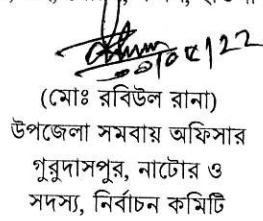 (মোঃ রবিউল রানা)
উপজেলা সমবায় অফিসার
গুরুদাসপুর, নাটোর ও
সদস্য, নির্বাচন কমিটি